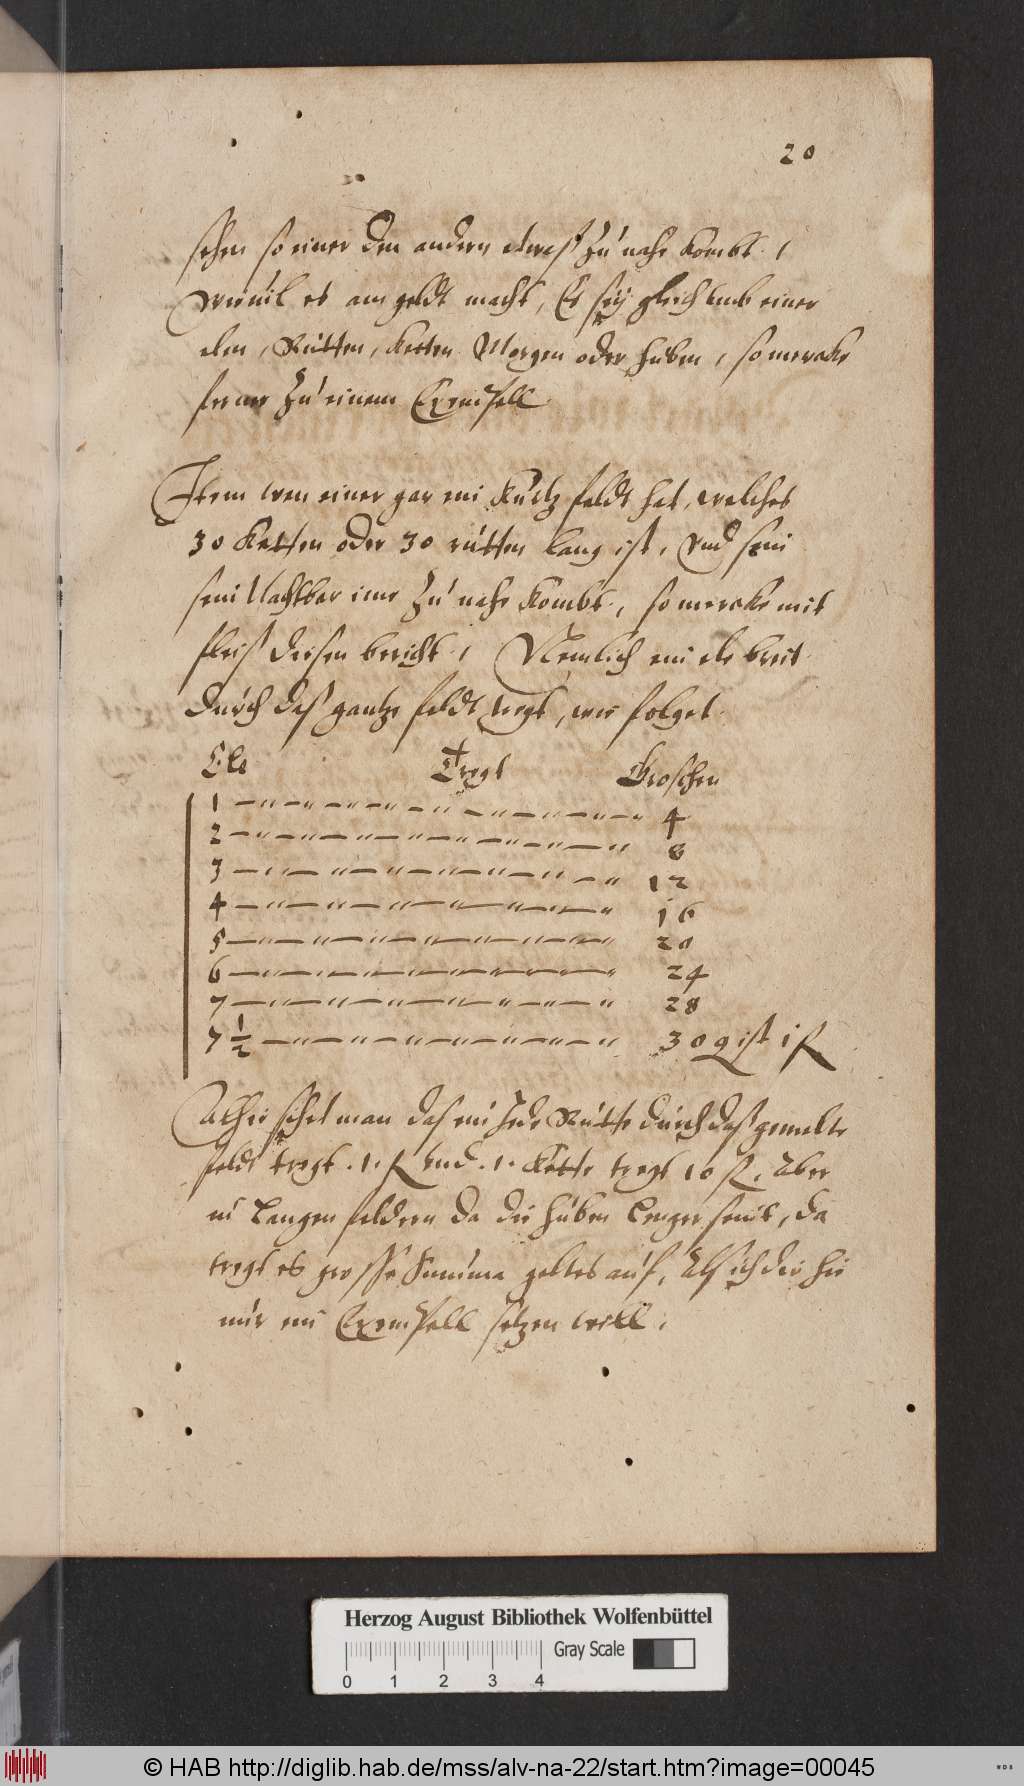 20
sehen so einer den andern etwas zu nahe kombt,
wieuil es am geldt macht, Es seÿ gleich umb einer
elen, Rutten, ketten Morgen oder huben, so mercke
ferner zu einem Exempell
Item wen einer gar ein kurtz feldt hat, welches
30 ketten oder 30 rutten lang ist, Vnd sein
sein Nachtbar ime zu nahe kombt, so mercke mit
fleis diesen bericht, Nemlich ein ele breit
durch das gantze feldt tregt, wie folget
Ele Tregt Groschen
1 4
2 8
3 12
4 16
5 20
6 24
7 28
7 1/2 30 g ist 1 fl
Alhie sihet man das ein Jede Rutte durch das gemelte
feldt tregt .1. fl vnd .1. kette tregt 10 fl, Aber
in Langen feldern da die huben lenger seint, da
tregt es grosse Summa geltes auf, Als ich dir hie
nur ein Exempell setzen will.
Herzog August Bibliothek Wolfenbüttel
Gray Scale
0 1 2 3 4
© HAB http://diglib.hab.de/mss/alv-na-22/start.htm?image=00045